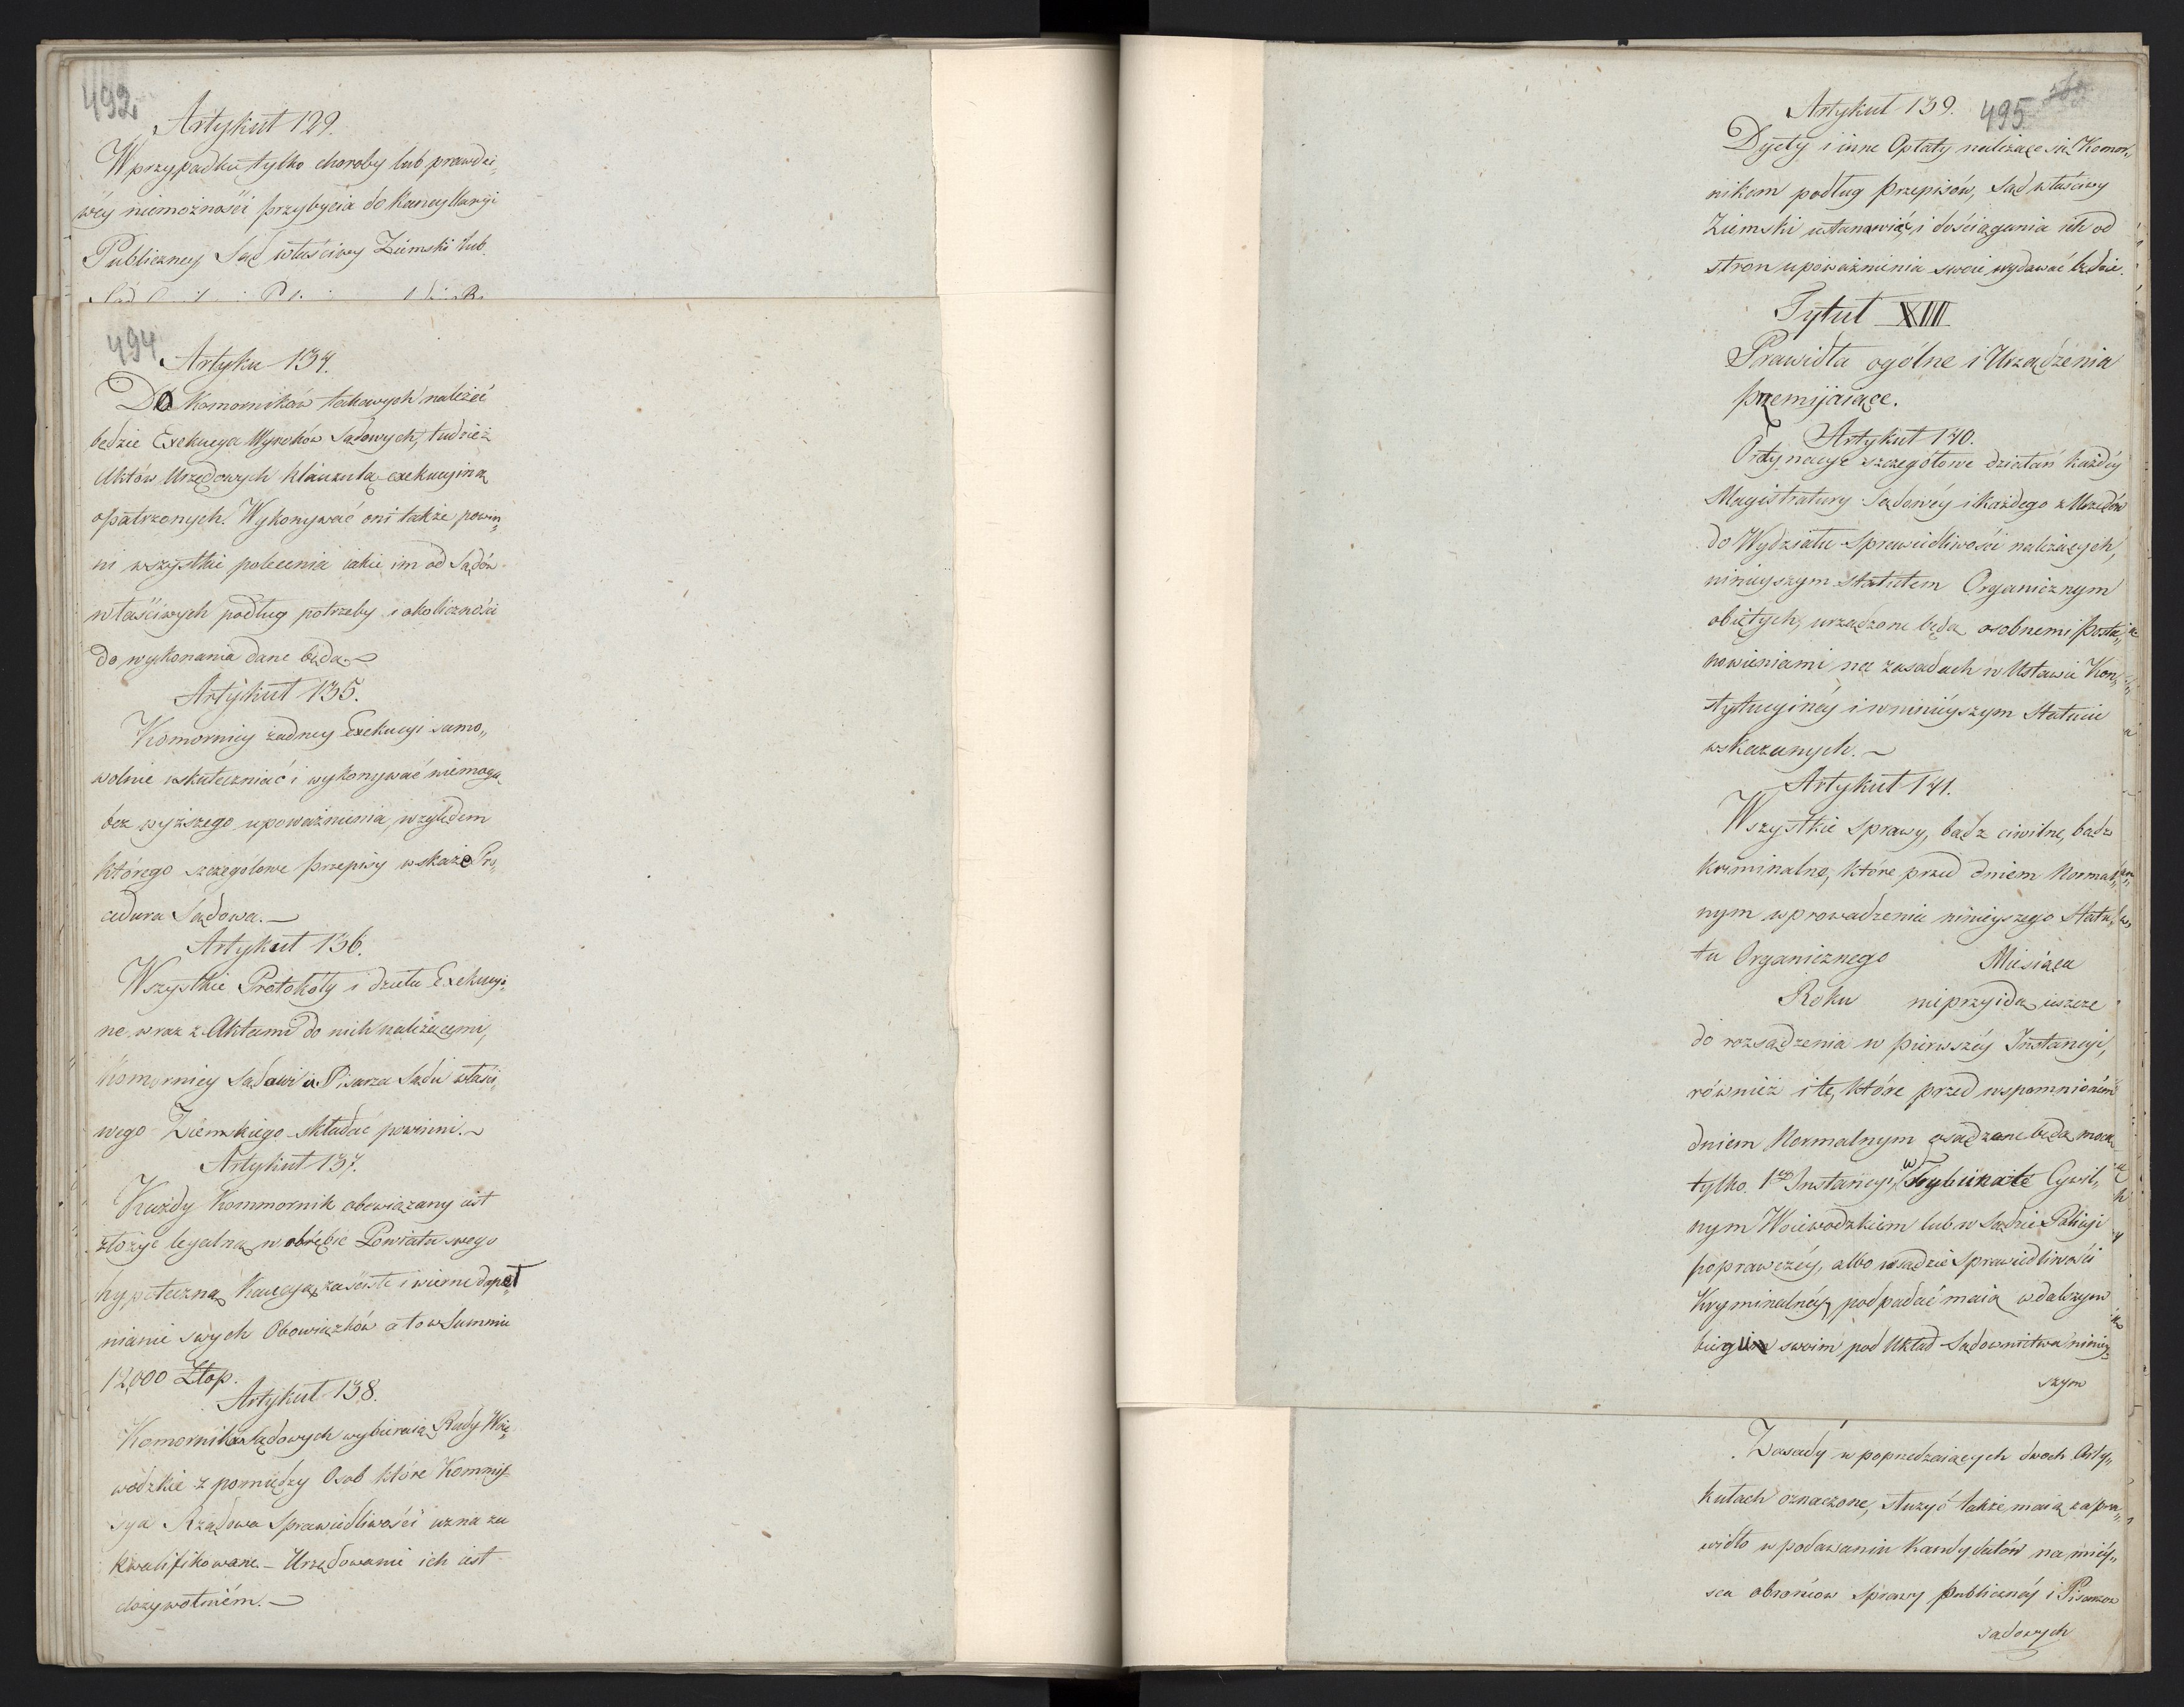 492
Artykuł 129.
W przypadku tylko choroby lub prawdzi„
wéy niemożności przybycia do Kancyllaryi
Publiczney, Sąd właściwy Ziemski lub
494
Artyku 134.
Do Komorników takowych należeć
będzie Exekucya Wyroków Sądowych, tudzież
Aktów Urzędowych klauzulą exekucyiną
opatrzonych. Wykonywać oni także powin„
ni wszystkie polecenia iakie im od Sądów
właściwych podług potrzeby i okoliczności
do wykonania dane będą.—
Artykuł 135.
Komornicy żadney Exekucyi samo„
wolnie uskuteczniać i wykonywać niemogą
bez wyższego upoważnienia, względem
którego szczegółowe przepisy wskaże Pro„
cedura Sądowa.—
Artykuł 136.
Wszystkie Protokóły i dzieła Exekucyi„
ne wraz z Aktami do nich należącemi,
Komornicy Sądowi u Pisarza Sądu właści„
wego Ziemskiego składać powinni.—
Artykuł 137.
Każdy Kommornik obowiązany iest
złożyć legalną w obrębie Powiatu swego
hypoteczną Kaucyą, za ścisłe i wierne dopeł
nianie swych Obowiązków a to w Summie
12,000 Złop.
Artykuł 138.
Komorników Sądowych wybieraią Rady Woie„
wódzkie z pomiędzy Osob które Kommis„
sya Rządowa Sprawiedliwości uzna za
kwalifikowane.— Urzędowanie ich iest
dożywotniém.—
Artykuł 139.
495
Dyety i inne Opłaty należące się Komor„
nikom podług przepisów, Sąd właściwy
Ziemski ustanawiać, i dościągania ich od
stron upoważnienia swoie wydawać będzie.
Tytuł XIII
Prawidła ogólne i Urządzenia
przemijaiące.
Artykuł 140.
Ordynacye szczegółowe działań każdéy
Magistratury Sądowéy i każdego z Urzędów
do Wydziału Sprawiedliwości należących,
ninieyszym Statutem Organicznym
obiętych, urządzone będą osobnemi posta„
nowieniami na zasadach w Ustawie Kon„
stytucyinéy i w ninieyszym Statucie
wskazanych.—
Artykuł 141.
Wszystkie sprawy, bądź ciwilne, bądź
kriminalne, które przed dniem Normal„
nym wprowadzenia ninieyszego Statu„
tu Organicznego Miesiąca
Roku nieprzyidą ieszcze
do rozsądzenia w pierwszéy Instancyi,
również i te, które przed wspomnioném
dniem Normalnym osądzone będą mocą
tylko 1éy Instancyi, w Trybunale Cywil„
nym Woiewodzkiem lub w Sądzie Policyi
poprawczéy, albo w sądzie Sprawiedliwości
Kryminalnéy, podpadać maią w dalszym
biegu swoim pod Układ Sądownictwa niniey„
szym
Zasady w poprzedzaiących dwoch Arty„
kułach oznaczone, służyć także maią za pra„
widło w podawaniu Kandydatów na miey„
sca obrońcow Sprawy publicznéy i Pisarzow
sądowych